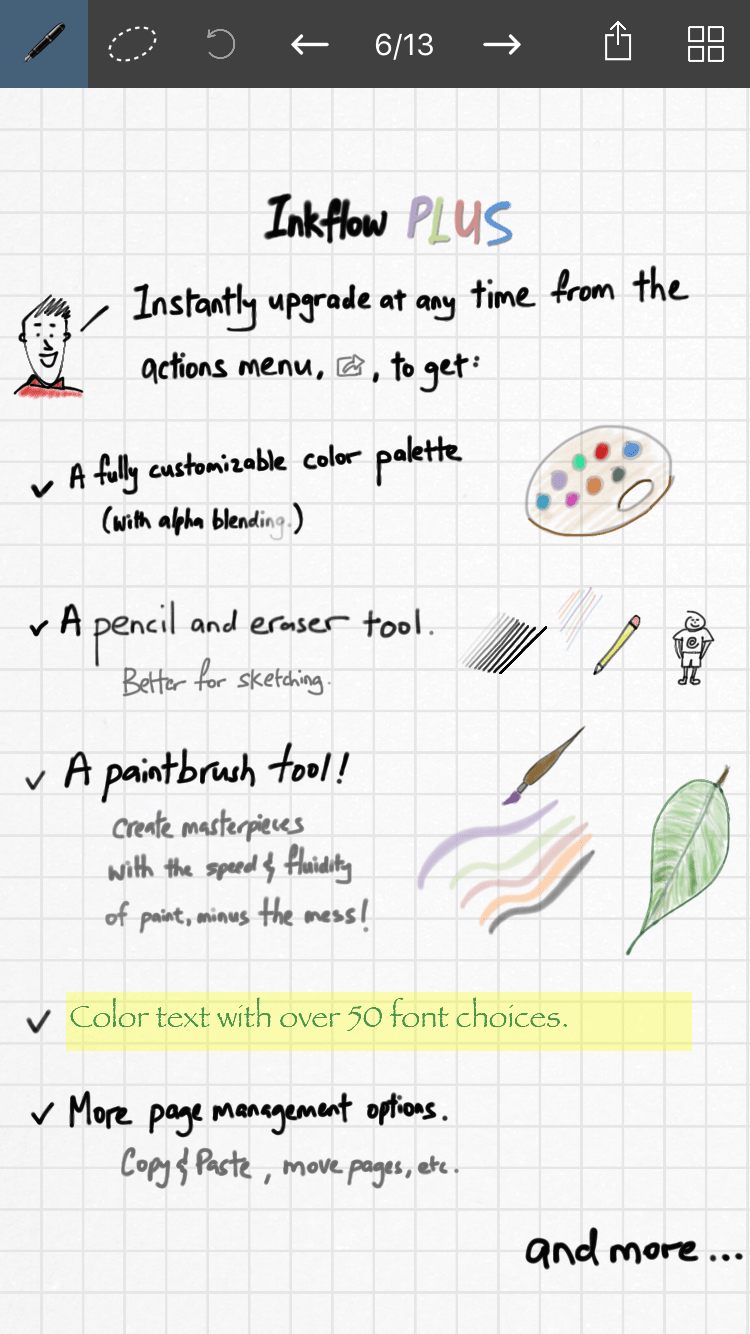 6/13
Inkflow PLUS
Instantly upgrade at any time from the
actions menu, , to get:
A fully customizable color palette
(with alpha blending.)
A pencil and eraser tool.
Better for sketching.
A paintbrush tool!
Create masterpieces
with the speed & fluidity
of paint, minus the mess!
Color text with over 50 font choices.
More page management options.
Copy & Paste, move pages, etc.
and more...